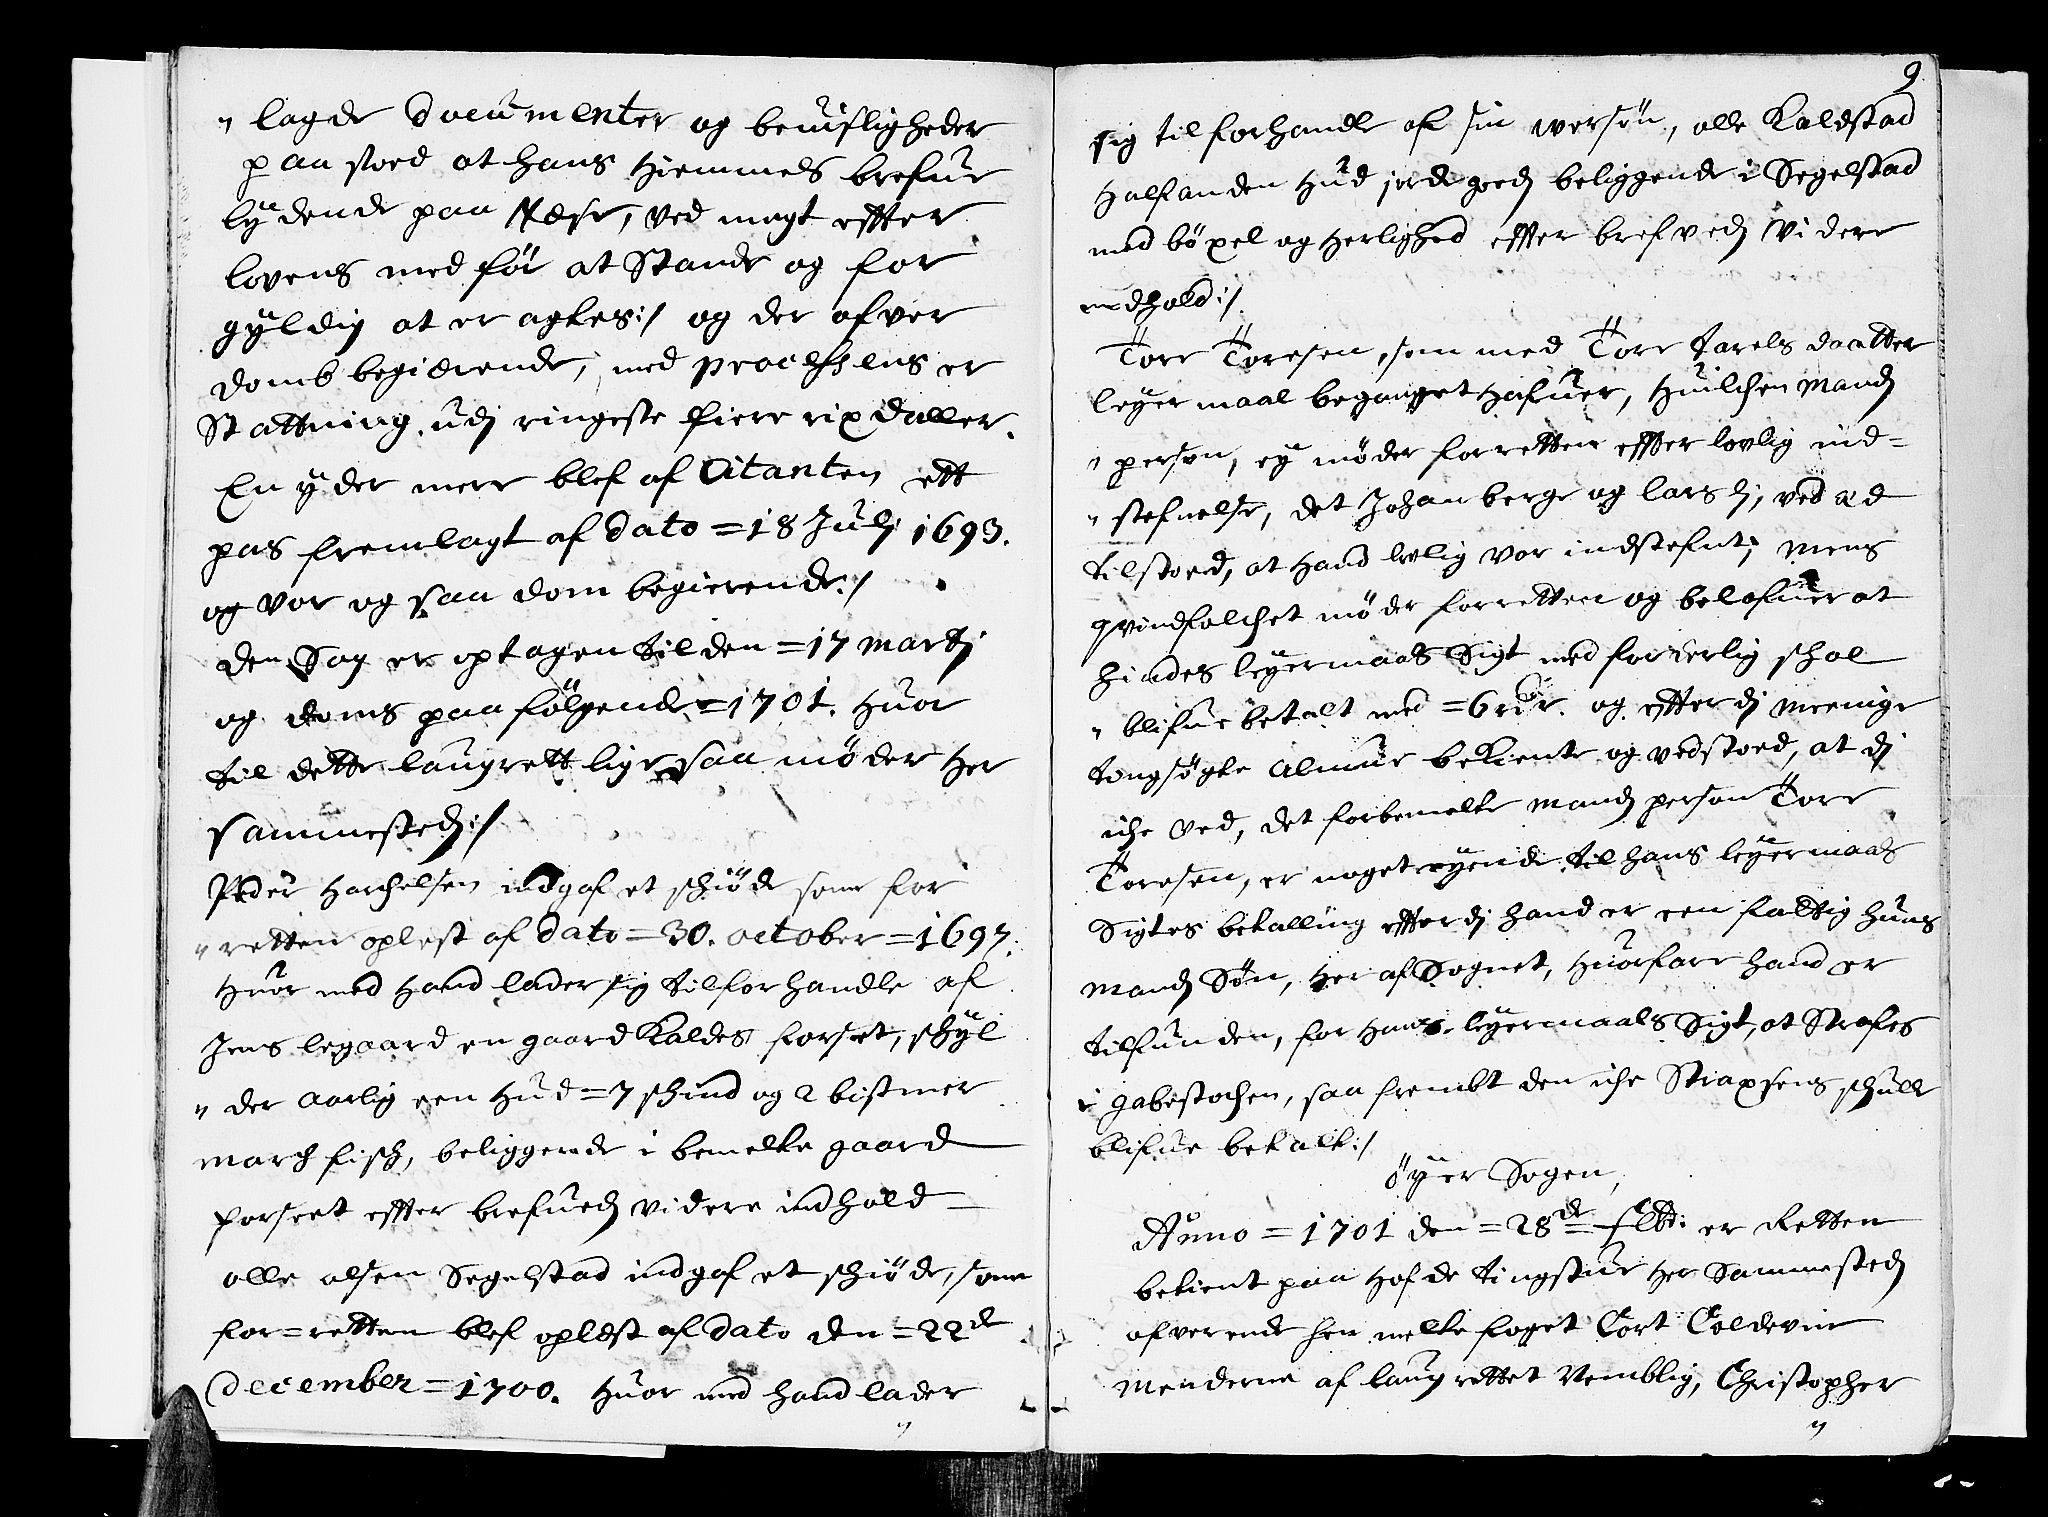 " lagde documenter og beuisligheder
paa stoed at hans Hiemmels brefue
lydende paa Næse, ved magt effter
lovens med før at Stande og for
gyldig at er agtes:/ og der ofver
domb begiærende, med processens er
Stattning udj ringeste fiere rixdaller.
En yder mere blef af Citanten ett
pas fremlagt af dato = 18 Julj 1693.
og var og saa dom begierende:/
den Sag er optagen til den = 17 martj
og doms paa følgende = 1701. Huor
til dette laugrett lige saa møder Her
sammestedz:/
Peder Harchelsen indgaf et schiøde som for
" retten oplest af dato = 30. october = 1697.
Huor med Hand lader sig tilforhandle af
Jens legaard en gaard Kaldes forset, schyl
" der aarlig een Hud = 7 schind og 2 bismer
march fisch, beliggende i bemelte gaard
forseet effter brefuedz videre indhold
olle olsen Segelstad indgaf et schiøde, som
for = retten blef oplæst af dato den = 22de
december = 1700. Huor med hand lader
9
sig tilforhandle af sin versøn, olle Kalstad
Halfanden Hud jordegodz beliggende i Segelstad
med böxel og Herlighed effter brefvedz Videre
indhold:/
Tore Toresen, som med Tore Jarels daatter
leyermaal beganget Hafuer, Huilchen Mandz
" person, ey møder for retten effter lovlig ind=
" stefnelse, det Johan berge og lars dj, ved æd
tilstoed, at Hand lovlig var indstefnt; Mens
qvindfolchet møder for retten og belofuer at
Hindes leyermaals Sigt med forderlig schal
" blifue betalt med = 6 rdr. og effterdj meenige
tingsøgte Almue bekiente og vedstoed, at dj
iche ved, det forbemelte Mandz person Tore
Toresen, er noget eyende til hans leyermaals
Sigtes betalling effterdj Hand er een fattig Huus
mandz Søn, Her af Sognet, Huorfore hand er
tilfunden, for Hans leyermaals Sigt, at Strafes
i gabestochen, saa frembt den iche Straxsens schulle
blifue betalt:/
öyer Sogen,
Anno = 1701 den = 28de Febr: er Retten
betient paa Hofde tingstue Her Sammestedz
ofverende hen melte foget Cort Coldevin
Menderne af laugrettet Nemblig, Christopher